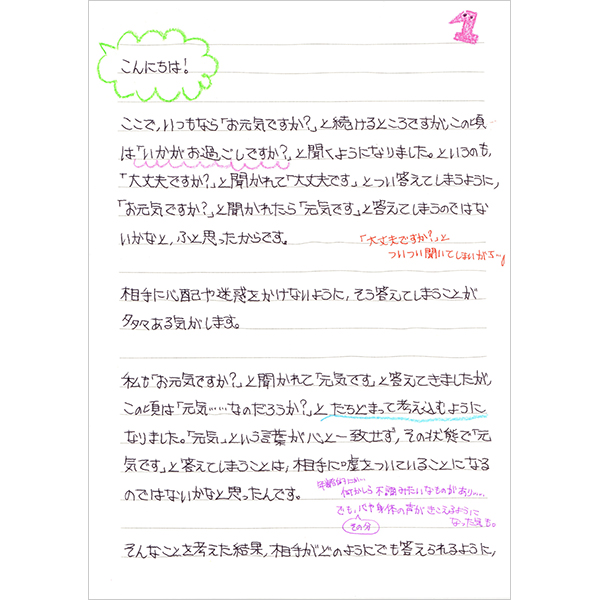 1
こんにちは!
ここで、いつもなら「お元気ですか?」と続けるところですが、この頃
は「いかがお過ごしですか?」と聞くようになりました。というのも、
「大丈夫ですか?」と聞かれて「大丈夫です」とつい答えてしまうように、
「お元気ですか?」と聞かれたら「元気です」と答えてしまうのではな
いかなと、ふと思ったからです。
「大丈夫ですか?」と
ついつい聞いてしまいがち…
相手に心配や迷惑をかけないように、そう答えてしまうことが
タタマある気がします。
私も「お元気ですか?」と聞かれて「元気です」と答えてきましたが、
この頃は「元気……なのだろうか?」と たちとまって考え込むように
なりました。「元気」という言葉が心と一致せず、その状態で「元
気です」と答えてしまうことは、相手に嘘をついていることになる
のではないかなと思ったんです。
年齢的にか…
何かしら不調みたいなものがあり……
でも、心や身体の声がきこえるように
なった気も。
その分
そんなことを考えた結果、相手がどのようにでも答えられるように、